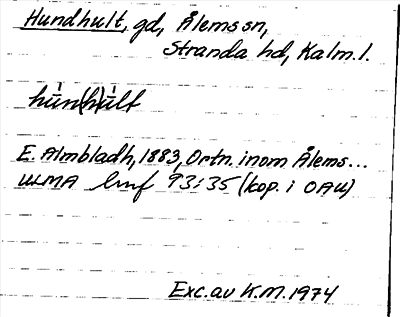 Hundhult, gd, Ålems sn,
Stranda hd, Kalm. l.
hun(h)ult
E. Almbladh, 1883, Ortn. inom Ålems...
ULMA hmf 93:35 (kop. i OAU)
Exc. av K.M. 1974